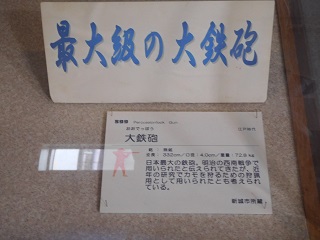 最大級の大鉄砲
江戸時代
おおでっぽう
大鉄砲
日本最大の鉄砲。明治の西南戦争で
用いられたと伝えられてきたが、近
年の研究でカモを狩るための狩猟
用として用いられたとも考えられ
ている。
新城市所蔵